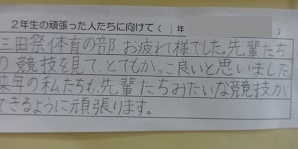 2年生の頑張った人たちに向けて( 1年
三田祭体育の部、お疲れ様でした。先輩たち
の競技を見て、とてもかっこ良いと思いました。
来年の私たちも、先輩たちみたいな競技が
できるように頑張ります。